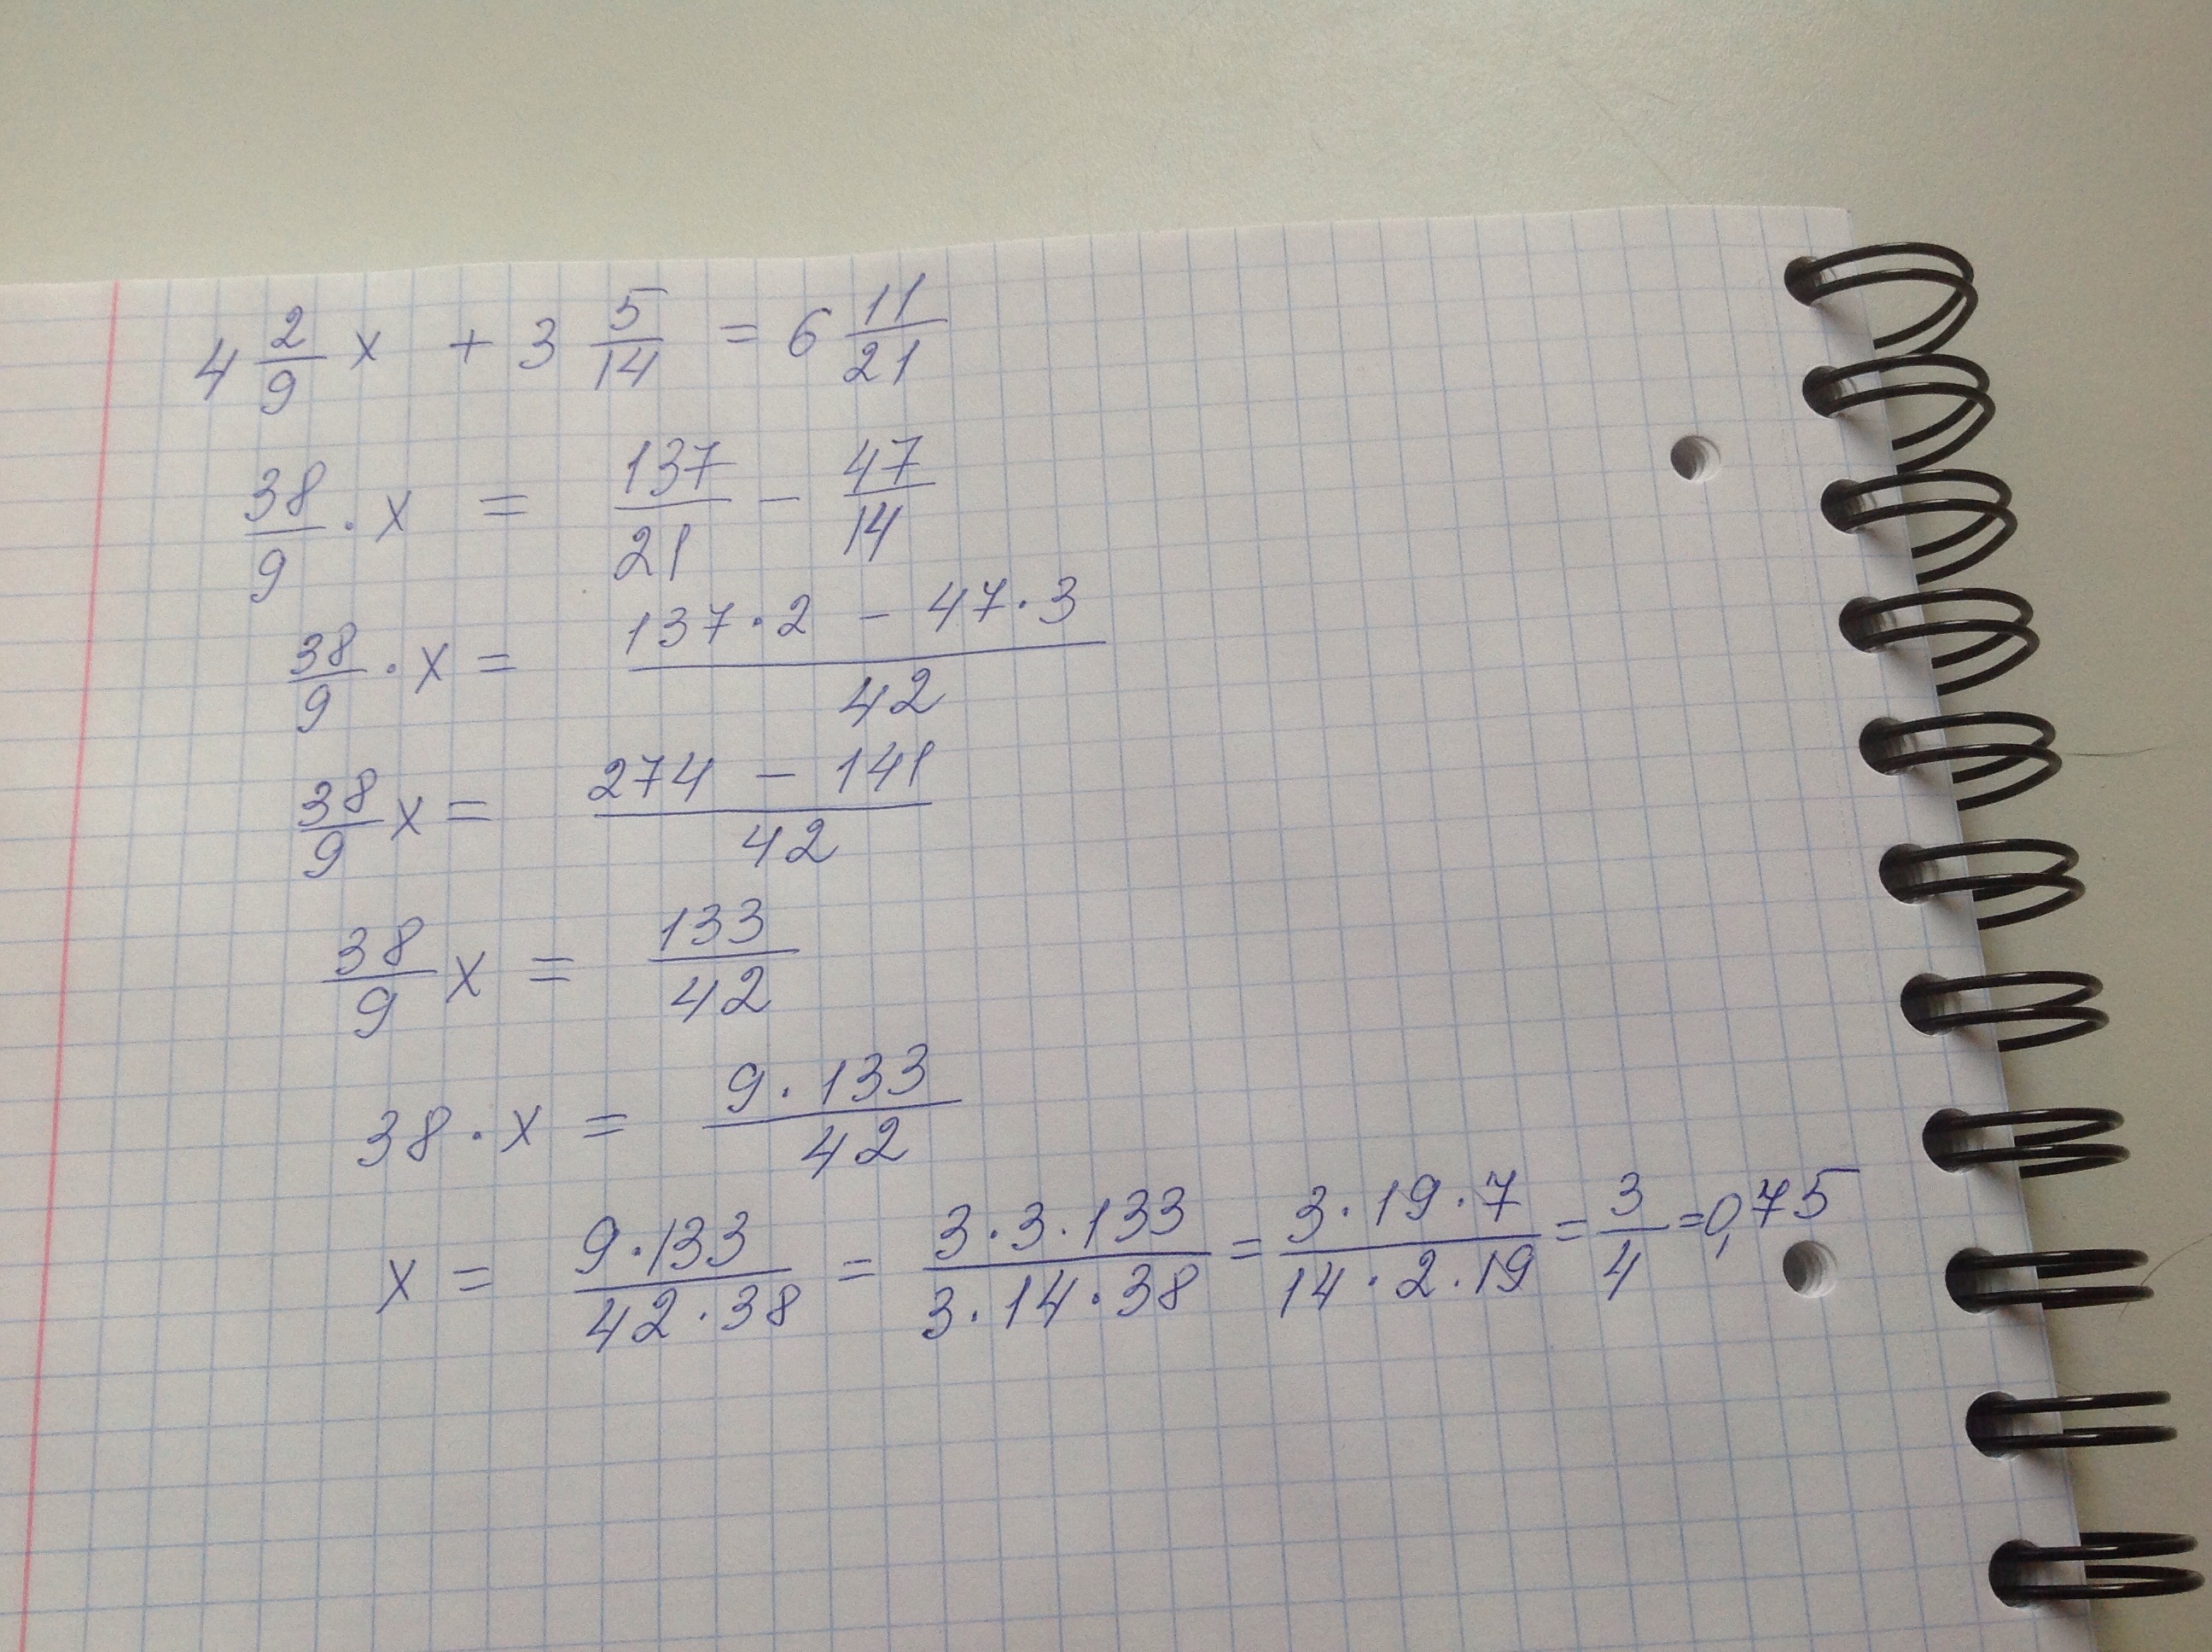 4 2/9 x + 3 5/14 = 6 11/21
38/9 · x = 137/21 - 47/14
38/9 · x = (137 · 2 - 47 · 3)/42
38/9 x = (274 - 141)/42
38/9 x = 133/42
38 · x = (9 · 133)/42
x = (9 · 133)/(42 · 38) = (3 · 3 · 133)/(3 · 14 · 38) = (3 · 19 · 7)/(14 · 2 · 19) = 3/4 = 0,75